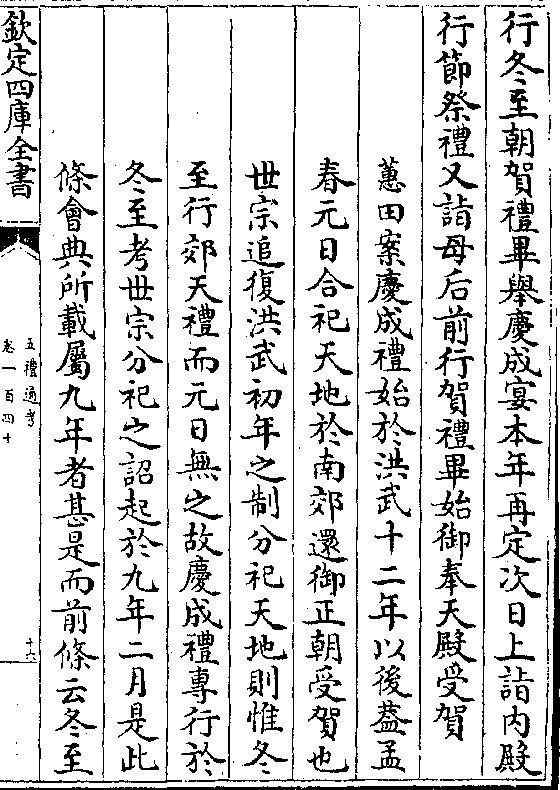 行冬至朝賀禮畢舉慶成宴本年再定次日上詣内殿
行節祭禮又詣母后前行賀禮畢始御奉天殿受賀
蕙田案慶成禮始於洪武十二年以後蓋孟
春元日合祀天地於南郊還御正朝受賀也
世宗追復洪武初年之制分祀天地則惟冬
至行郊天禮而元日無之故慶成禮專行於
冬至考世宗分祀之詔起於九年二月是此
條會典所載屬九年者甚是而前條云冬至
欽定四庫全書
五禮通考
卷一百四十
十六